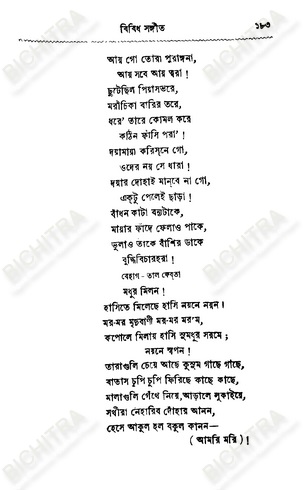 বিবিধ সঙ্গীত ১৮৩
আয় গো তোরা পুরাঙ্গনা,
আয় সবে আয় ত্বরা !
ছুটেছিল পিয়াসভরে,
মরীচিকা বারির তরে,
ধরে' তারে কোমল করে
কঠিন ফাঁসি পরা' !
দয়ামায়া করিস্‌নে গো,
ওদের নয় সে ধারা !
দয়ার দোহাই মান্‌বে না গো,
একটু পেলেই ছাড়া !
বাঁধন কাটা বন্যটাকে,
মায়ার ফাঁদে ফেলাও পাকে,
ভুলাও তাকে বাঁশির ডাকে
বুদ্ধিবিচারহরা !
বেহাগ - তাল ফের্‌তা
মধুর মিলন !
হাসিতে মিলেছে হাসি নয়নে নয়ন ।
মর-মর মৃদুবাণী মর-মর মর'মে,
কপোলে মিলায় হাসি সুমধুর সরমে ;
নয়নে স্বপন !
তারাগুলি চেয়ে আছে কুসুম গাছে গাছে,
বাতাস চুপি চুপি ফিরিছে কাছে কাছে,
মালাগুলি গেঁথে নিয়ে, আড়ালে লুকাইয়ে,
সখীরা নেহারিব দোঁহার আনন,
হেসে আকুল হল বকুল কানন—
( আমরি মরি ) !
BICHITRA